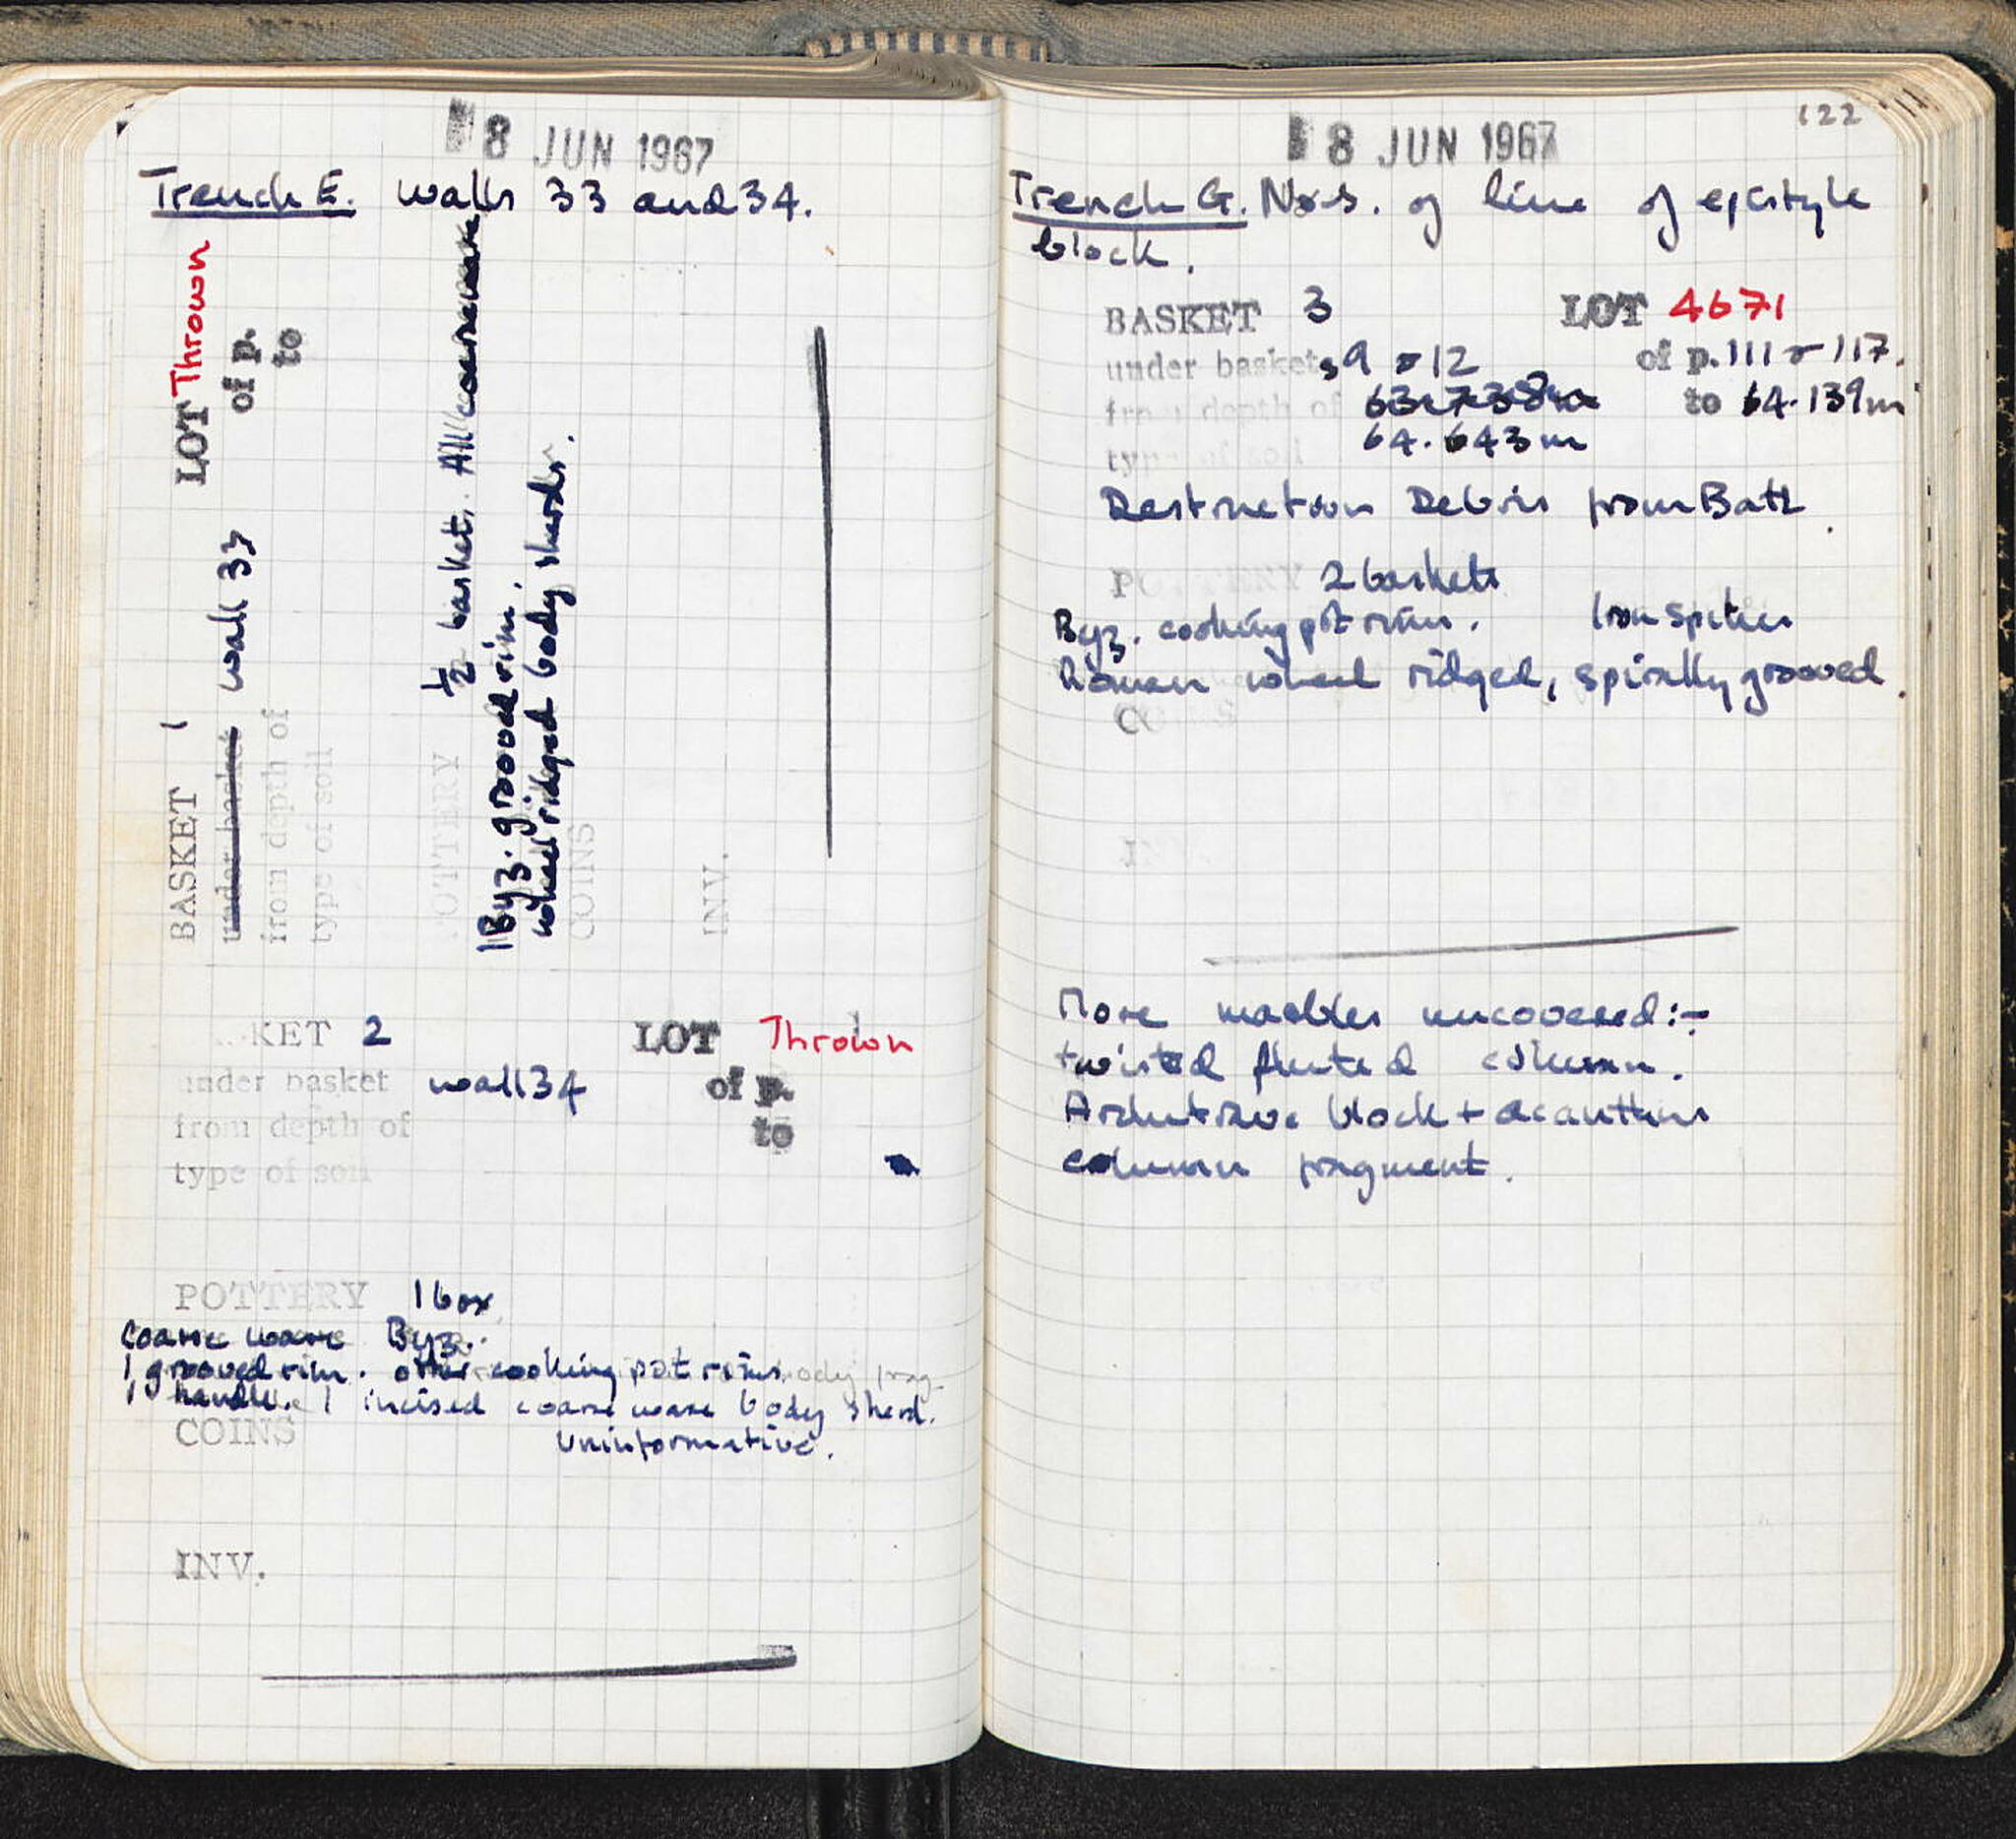 8 JUN 1967
Trench E. walls 33 and 34.
BASKET 1 LOT Thrown
under basket wall 33 of p.
from depth of to
type of soil
POTTERY 1/2 basket. All coarseware
1 Byz. grooved rim.
wheel ridged body sherds.
COINS
INV.
BASKET 2 LOT Thrown
under basket wall 34 of p.
from depth of to
type of soil
POTTERY 1 box
coarse ware Byz.
1 grooved rim. other cooking pot rims.
1 handle. 1 incised coarse ware body sherd.
COINS
uninformative.
INV.
122
8 JUN 1967
Trench G. N+S. of line of epistyle
block.
BASKET 3 LOT 4671
under baskets 9 + 12 of p. 111 + 117.
from depth of 63.738m to 64.139m
64.643m
type of soil
Destruction Debris from Bath.
POTTERY 2 baskets
Byz. cooking pot rims. Iron spikes
Roman wheel ridged, spirally grooved.
COINS
INV.
More marbles uncovered:-
twisted fluted column.
Architrave block + acanthus
column fragment.